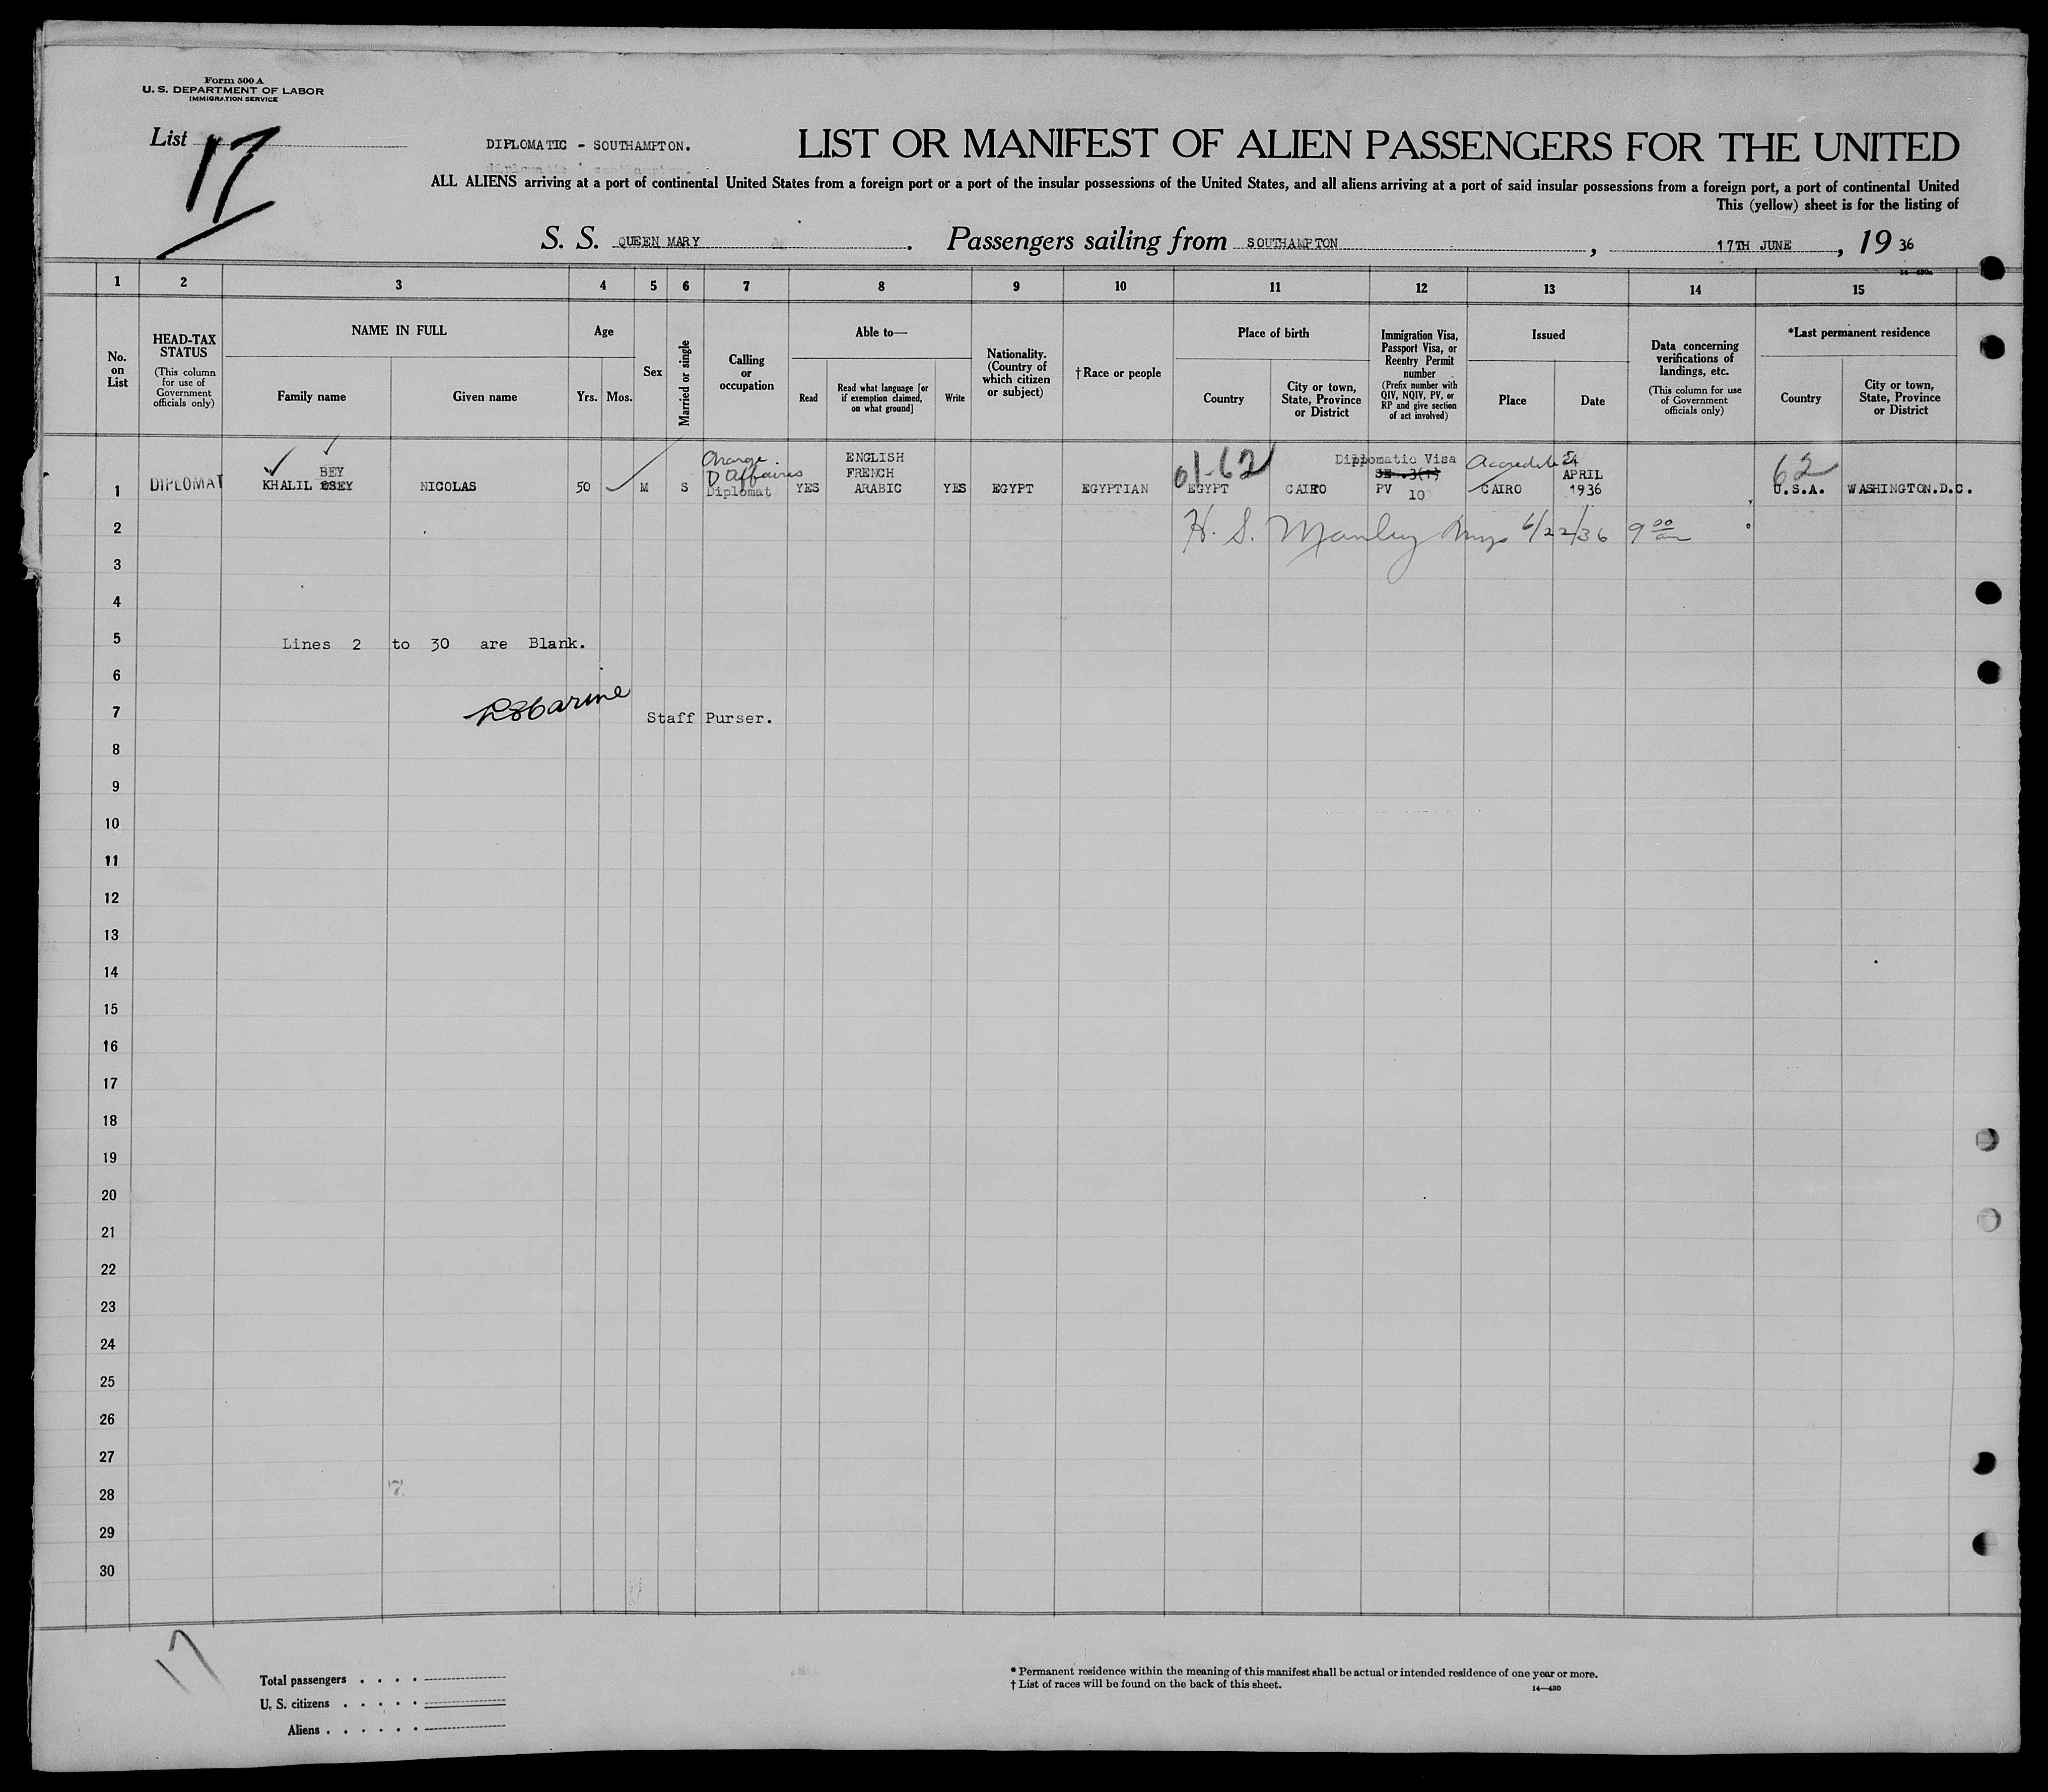 Form 500 A
U. S. DEPARTMENT OF LABOR
IMMIGRATION SERVICE
List 17
DIPLOMATIC - SOUTHAMPTON.
LIST OR MANIFEST OF ALIEN PASSENGERS FOR THE UNITED
ALL ALIENS arriving at a port of continental United States from a foreign port or a port of the insular possessions of the United States, and all aliens arriving at a port of said insular possessions from a foreign port, a port of continental United
This (yellow) sheet is for the listing of
S. S. QUEEN MARY . Passengers sailing from SOUTHAMPTON , 17TH JUNE , 19 36
1 2 3 4 5 6 7 8 9 10 11 12 13 14 15
No. on List
HEAD-TAX STATUS
(This column for use of Government officials only)
NAME IN FULL
Family name
Given name
Age
Yrs. Mos.
Sex
Married or single
Calling or occupation
Able to—
Read
Read what language [or if exemption claimed, on what ground]
Write
Nationality. (Country of which citizen or subject)
†Race or people
Place of birth
Country
City or town, State, Province or District
Immigration Visa, Passport Visa, or Reentry Permit number
(Prefix number with QIV, NQIV, PV, or RP and give section of act involved)
Issued
Place
Date
Data concerning verifications of landings, etc.
(This column for use of Government officials only)
*Last permanent residence
Country
City or town, State, Province or District
1 DIPLOMAT
BEY
KHALIL
NICOLAS
50
M S
Charge
D Affaires
Diplomat
YES
ENGLISH
FRENCH
ARABIC
YES
EGYPT
EGYPTIAN
01-62
EGYPT
CAIRO
Diplomatic Visa
PV 10
CAIRO
APRIL
1936
62
U.S.A.
WASHINGTON.D.C.
2
H. S. Manley 6/22/36 9 00 am
3
4
5
Lines 2 to 30 are Blank.
6
7
Staff Purser.
8
9
10
11
12
13
14
15
16
17
18
19
20
21
22
23
24
25
26
27
28
29
30
17
Total passengers . . . .
U. S. citizens . . . . .
Aliens . . . . . .
* Permanent residence within the meaning of this manifest shall be actual or intended residence of one year or more.
† List of races will be found on the back of this sheet.
14—430